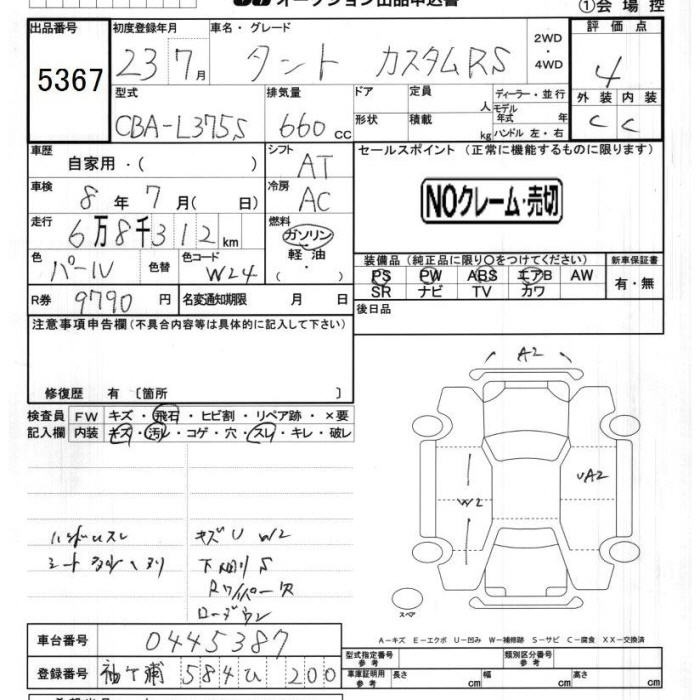 オークション出品申込書
①会場控
出品番号
5367
初度登録年月
23 7月
車名・グレード
タント カスタムRS
2WD
・
4WD
評価点
4
外装 内装
C C
型式
CBA-L375S
排気量
660 cc
ドア
定員
人
ディーラー・並行
モデル年式 年
形状
積載
kg
ハンドル 左・右
車歴
自家用・( )
シフト
AT
車検
8年 7月( 日)
冷房
AC
走行
6万8千312km
燃料
ガソリン
・
軽油
( ・ )
色
パール
色替
色コード
W24
R券
9790円
名変通知期限
月 日
セールスポイント(正常に機能するものに限ります)
NOクレーム・売切
装備品(純正品に限り○をつけてください)
PS PW ABS エアB AW
SR ナビ TV カワ
新車保証書
有・無
後日品
注意事項申告欄(不具合内容等は具体的に記入して下さい)
修復歴 有 〔箇所 〕
検査員記入欄
FW キズ・飛石・ヒビ割・リペア跡・×要
内装 キズ・汚レ・コゲ・穴・スレ・キレ・破レ
ハンドルスレ
キズU W2
下回りS
Rワイパー欠
ローダウン
A2
W2
UA2
スペア
A-キズ E-エクボ U-凹み W-補修跡 S-サビ C-腐食 XX-交換済
車台番号
0445387
登録番号
袖ケ浦 584ひ 200
型式指定番号
参考
類別区分番号
参考
車庫証明用
参考
長さ cm
幅 cm
高さ cm